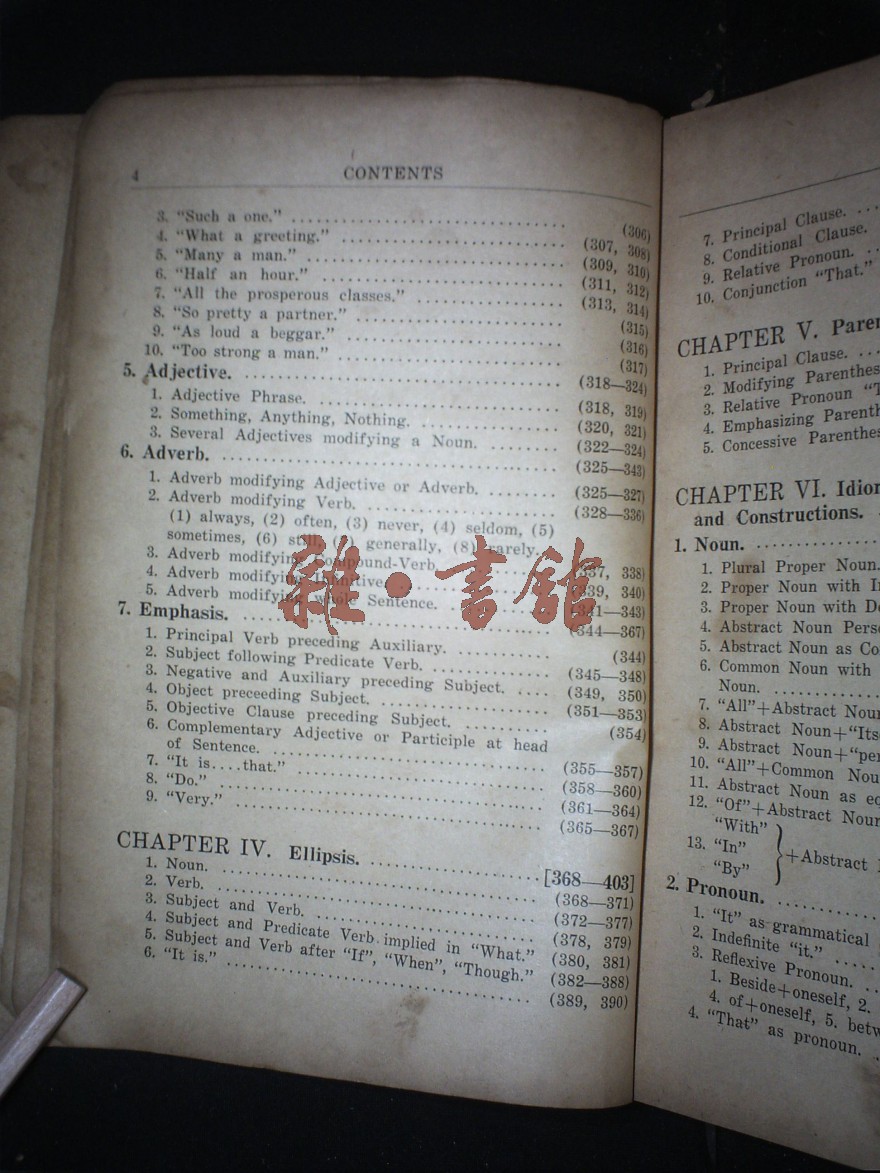 4 CONTENTS
3. “Such a one.” (306)
4. “What a greeting.” (307, 308)
5. “Many a man.” (309, 310)
6. “Half an hour.” (311, 312)
7. “All the prosperous classes.” (313, 314)
8. “So pretty a partner.” (315)
9. “As loud a beggar.” (316)
10. “Too strong a man.” (317)
5. Adjective. (318—324)
1. Adjective Phrase. (318, 319)
2. Something, Anything, Nothing. (320, 321)
3. Several Adjectives modifying a Noun. (322—324)
6. Adverb. (325—343)
1. Adverb modifying Adjective or Adverb. (325—327)
2. Adverb modifying Verb. (328—336)
(1) always, (2) often, (3) never, (4) seldom, (5)
sometimes, (6) still, generally, (8) rarely.
3. Adverb modifying Compound-Verb. (337, 338)
4. Adverb modifying Infinitive. (339, 340)
5. Adverb modifying whole Sentence. (341—343)
7. Emphasis. (344—367)
1. Principal Verb preceding Auxiliary. (344)
2. Subject following Predicate Verb. (345—348)
3. Negative and Auxiliary preceding Subject. (349, 350)
4. Object preceeding Subject. (351—353)
5. Objective Clause preceding Subject. (354)
6. Complementary Adjective or Participle at head
of Sentence. (355—357)
7. “It is....that.” (358—360)
8. “Do.” (361—364)
9. “Very.” (365—367)
CHAPTER IV. Ellipsis. [368—403]
1. Noun. (368—371)
2. Verb. (372—377)
3. Subject and Verb. (378, 379)
4. Subject and Predicate Verb implied in “What.” (380, 381)
5. Subject and Verb after “If”, “When”, “Though.” (382—388)
6. “It is.” (389, 390)
雜·書館
7. Principal Clause.
8. Conditional Clause.
9. Relative Pronoun.
10. Conjunction “That.”
CHAPTER V. Paren
1. Principal Clause.
2. Modifying Parenthes
3. Relative Pronoun
4. Emphasizing Parenth
5. Concessive Parenthes
CHAPTER VI. Idiom
and Constructions.
1. Noun.
1. Plural Proper Noun.
2. Proper Noun with
3. Proper Noun with
4. Abstract Noun Pers
5. Abstract Noun as Co
6. Common Noun with
Noun.
7. “All”+Abstract Noun
8. Abstract Noun+“Its
9. Abstract Noun+“per
10. “All”+Common Nou
11. Abstract Noun as eq
12. “Of”+Abstract Noun
“With”
13. “In” +Abstract
“By”
2. Pronoun.
1. “It” as grammatical
2. Indefinite “it.”
3. Reflexive Pronoun.
1. Beside+oneself, 2.
4. of+oneself, 5. betw
4. “That” as pronoun.